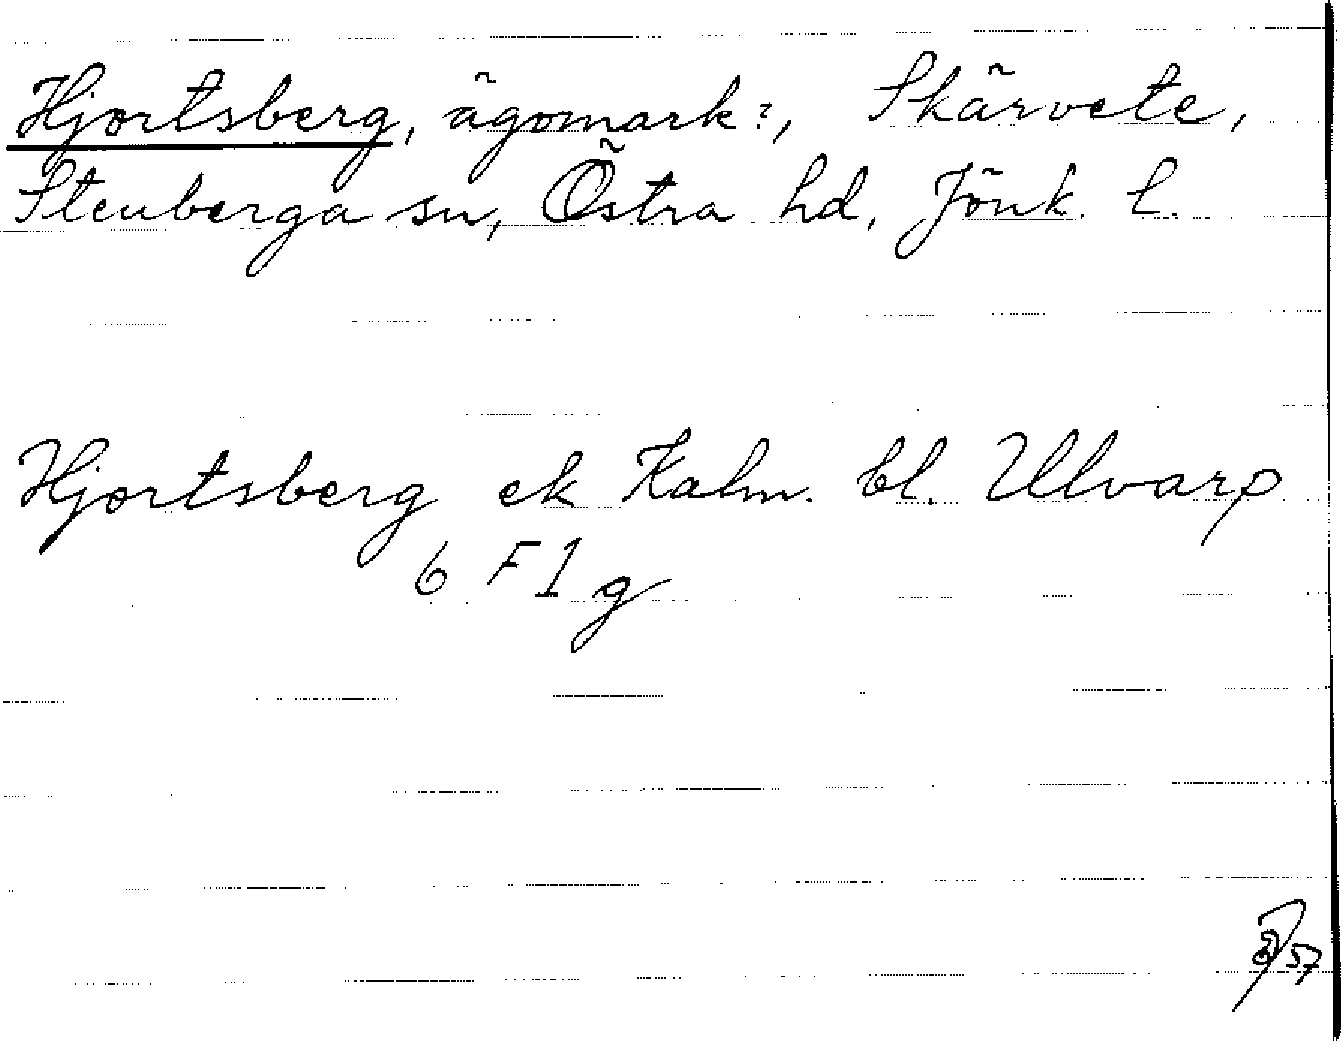 Hjortsberg, ägomark?, Skärvete,
Stenberga sn, Östra hd, Jönk. l.
Hjortsberg ek Kalm. bl. Ulvarp
6 F 1 g
57